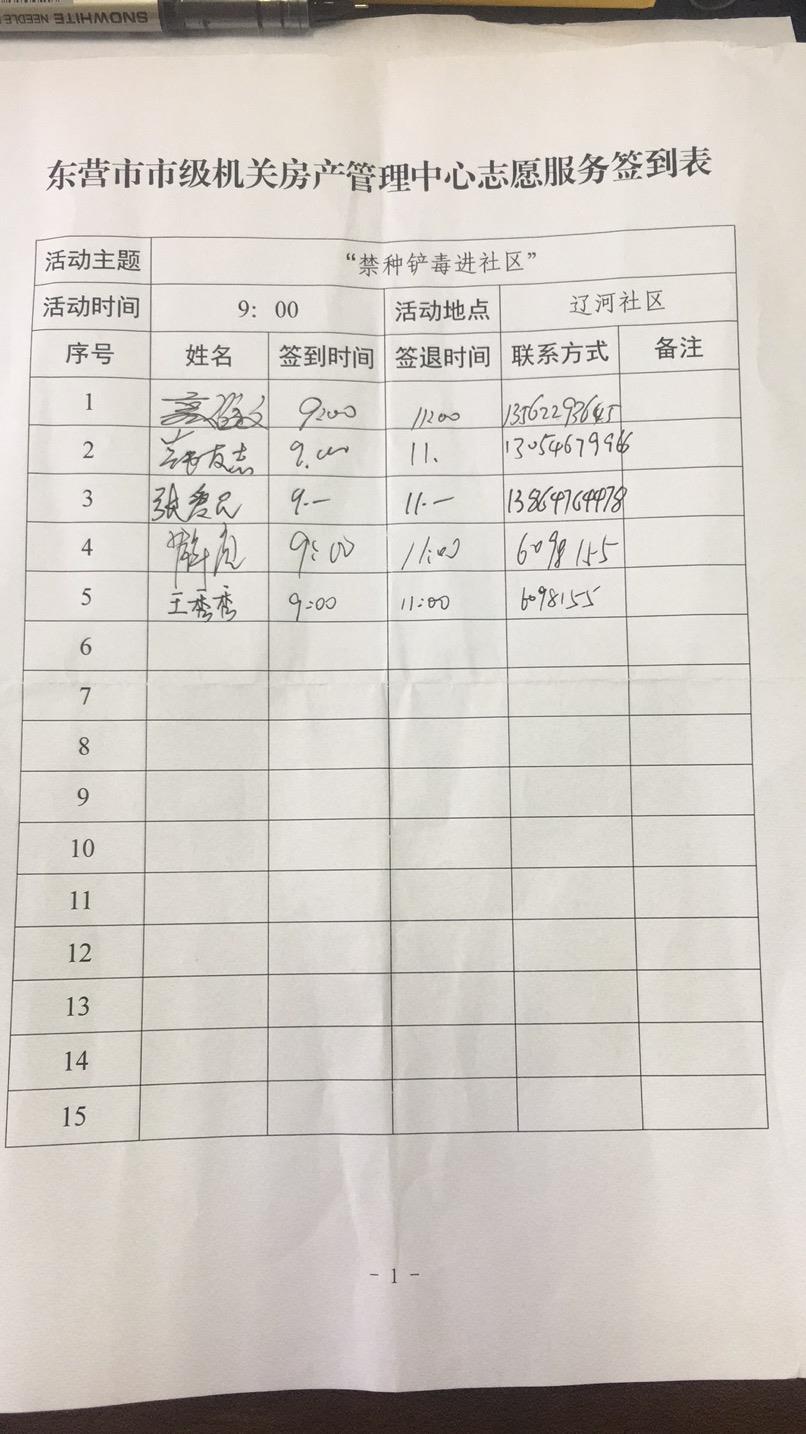 SNOWHITE NEEDLE
东营市市级机关房产管理中心志愿服务签到表
活动主题 “禁种铲毒进社区”
活动时间 9：00 活动地点 辽河社区
序号 姓名 签到时间 签退时间 联系方式 备注
1 9:00 11:00 13562293645
2 友志 9:00 11. 13054679966
3 张 9.— 11.— 13864764478
4 9:00 11:00 6098155
5 王秀秀 9:00 11:00 6098155
6
7
8
9
10
11
12
13
14
15
- 1 -